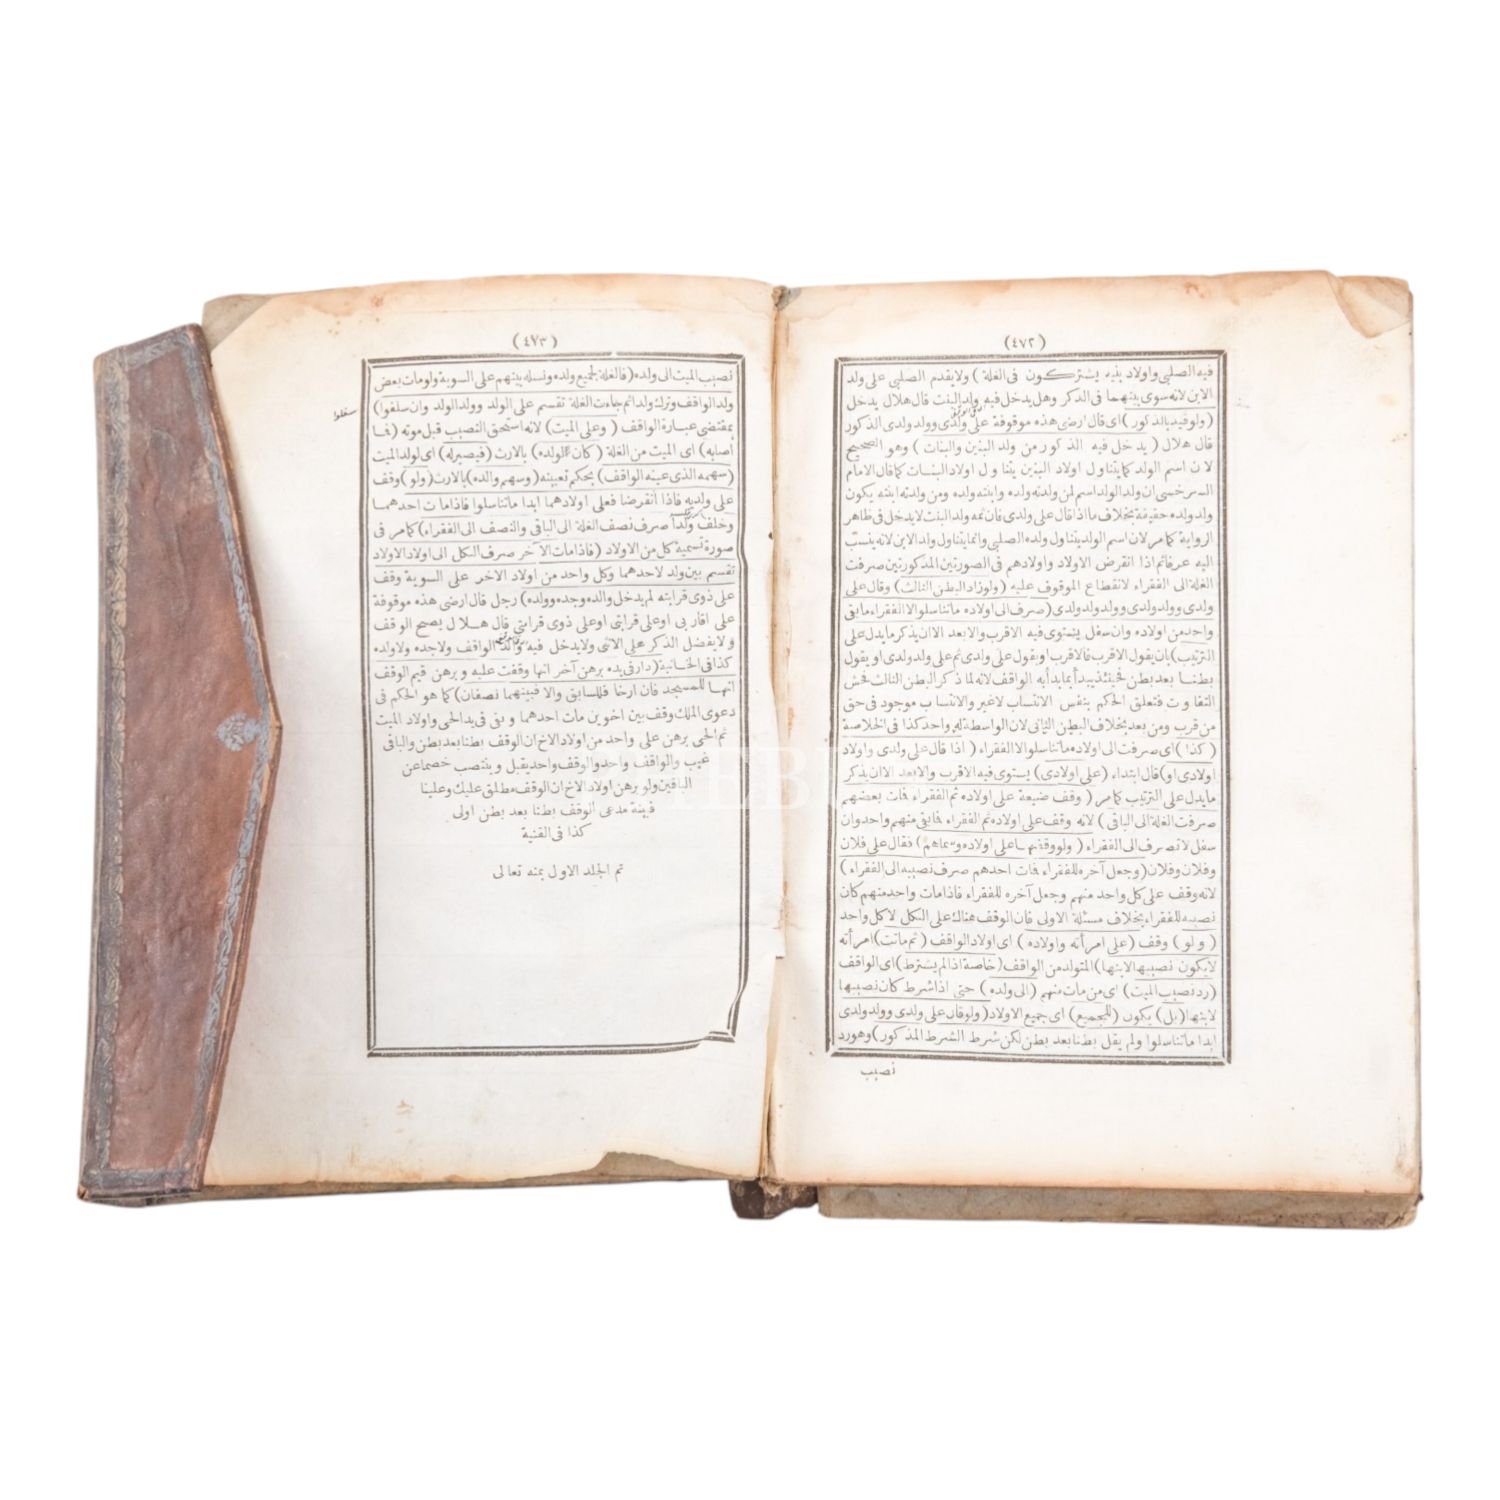 (٤٧٢)
فيه الصلبى واولاد بنيه يشتركون فى الغلة) ولا يقدم الصلبى على ولد
الابن لانه سوى بينهما فى الذكر وهل يدخل فيه ولد البنت قال هلال يدخل
(ولو قيد بالذكور) اى قال ارضى هذه موقوفة على ولدى وولد ولدى الذكور
قال هلال (يدخل فيه الذكور من ولد البنين والبنات) وهو الصحيح
لان اسم الولد كما يتناول اولاد البنين يتناول اولاد البنات كما قال الامام
السرخسى ان ولد الولد اسم لمن ولدته ولده وابنته ولده ومن ولدته ابنته يكون
ولد ولده حقيقة بخلاف ما اذا قال على ولدى فان ثمه ولد البنت لا يدخل فى ظاهر
الرواية كما مر لان اسم الولد يتناول ولده الصلبى وانما يتناول ولد الابن لانه ينسب
اليه عرفا ثم اذا انقرض الاولاد واولادهم فى الصورتين المذكورتين صرفت
الغلة الى الفقراء لانقطاع الموقوف عليه (ولو زاد البطن الثالث) وقال على
ولدى وولد ولدى وولد ولد ولدى (صرف الى اولاده ماتناسلوا لا الفقراء ما بقى
واحد من اولاده وان سفل يستوى فيه الاقرب والابعد الا ان يذكر ما يدل على
الترتيب) بان يقول الاقرب فالاقرب او يقول على ولدى ثم على ولد ولدى او يقول
بطنا بعد بطن فحينئذ يبدأ بما بدأ به الواقف لانه لما ذكر البطن الثالث فحش
التفاوت فتعلق الحكم بنفس الانتساب لا غير والانتساب موجود فى حق
من قرب ومن بعد بخلاف البطن الثانى لان الواسطة له واحد كذا فى الخلاصة
(كذا) اى صرفت الى اولاده ماتناسلوا لا الفقراء (اذا قال على ولدى واولاد
اولادى او) قال ابتداء (على اولادى) يستوى فيه الاقرب والابعد الا ان يذكر
ما يدل على الترتيب كما مر (وقف ضيعة على اولاده ثم الفقراء فمات بعضهم
صرفت الغلة الى الباقى) لانه وقف على اولاده ثم الفقراء فما بقى منهم واحد وان
سفل لا تصرف الى الفقراء (ولو وقفها على اولاده وسماهم) فقال على فلان
وفلان وفلان (وجعل آخره للفقراء فمات احدهم صرف نصيبه الى الفقراء)
لانه وقف على كل واحد منهم وجعل آخره للفقراء فاذا مات واحد منهم كان
نصيبه للفقراء بخلاف مسئلة الاولى فان الوقف هناك على الكل لا كل واحد
(ولو) وقف (على امرأته واولاده) اى اولاد الواقف (ثم ماتت) امرأته
لا يكون نصيبها لابنها) المتولد من الواقف (خاصة اذا لم يشترط) اى الواقف
(رد نصيب الميت) اى من مات منهم (الى ولده) حتى اذا شرط كان نصيبها
لابنها (بل) يكون (للجميع) اى جميع الاولاد (ولو قال على ولدى وولد ولدى
ابدا ماتناسلوا ولم يقل بطنا بعد بطن لكن شرط الشرط المذكور) وهو رد
نصيب
(٤٧٣)
نصيب الميت الى ولده (فالغلة لجميع ولده ونسله بينهم على السوية ولو مات بعض
ولد الواقف وترك ولدا ثم جاءت الغلة تقسم على الولد وولد الولد وان سفلوا)
سفلوا
بمقتضى عبارة الواقف (وعلى الميت) لانه استحق النصيب قبل موته (فما
اصابه) اى الميت من الغلة (كان لولده) بالارث (فيصير له) اى لولد الميت
(سهمه الذى عينه الواقف) بحكم تعيينه (وسهم والده) بالارث (ولو) وقف
على ولديه فاذا انقرضا فعلى اولادهما ابدا ماتناسلوا فاذا مات احدهما
وخلف ولدا صرف نصف الغلة الى الباقى والنصف الى الفقراء) كما مر فى
صورة تسمية كل من الاولاد (فاذا مات الآخر صرف الكل الى اولاد الاولاد
تقسم بين ولد لاحدهما وكل واحد من اولاد الاخر على السوية وقف
على ذوى قرابته لم يدخل والده وجده وولده) رجل قال ارضى هذه موقوفة
على اقاربى او على قرابتى او على ذوى قرابتى قال هلال يصح الوقف
ولا يفضل الذكر على الانثى ولا يدخل فيه والد الواقف ولا جده ولا ولده
كذا فى الخانية (دار فى يده برهن آخر انها وقفت عليه وبرهن قيم الوقف
انها للمسجد فان ارخا فللسابق والا فبينهما نصفان) كما هو الحكم فى
دعوى الملك وقف بين اخوين مات احدهما وبقى فى يد الحى واولاد الميت
ثم الحى برهن على واحد من اولاد الاخ ان الوقف بطنا بعد بطن والباقى
غيب والواقف واحد والوقف واحد يقبل وينتصب خصما عن
الباقين ولو برهن اولاد الاخ ان الوقف مطلق عليك وعلينا
فبينة مدعى الوقف بطنا بعد بطن اولى
كذا فى القنية
تم الجلد الاول بمنه تعالى